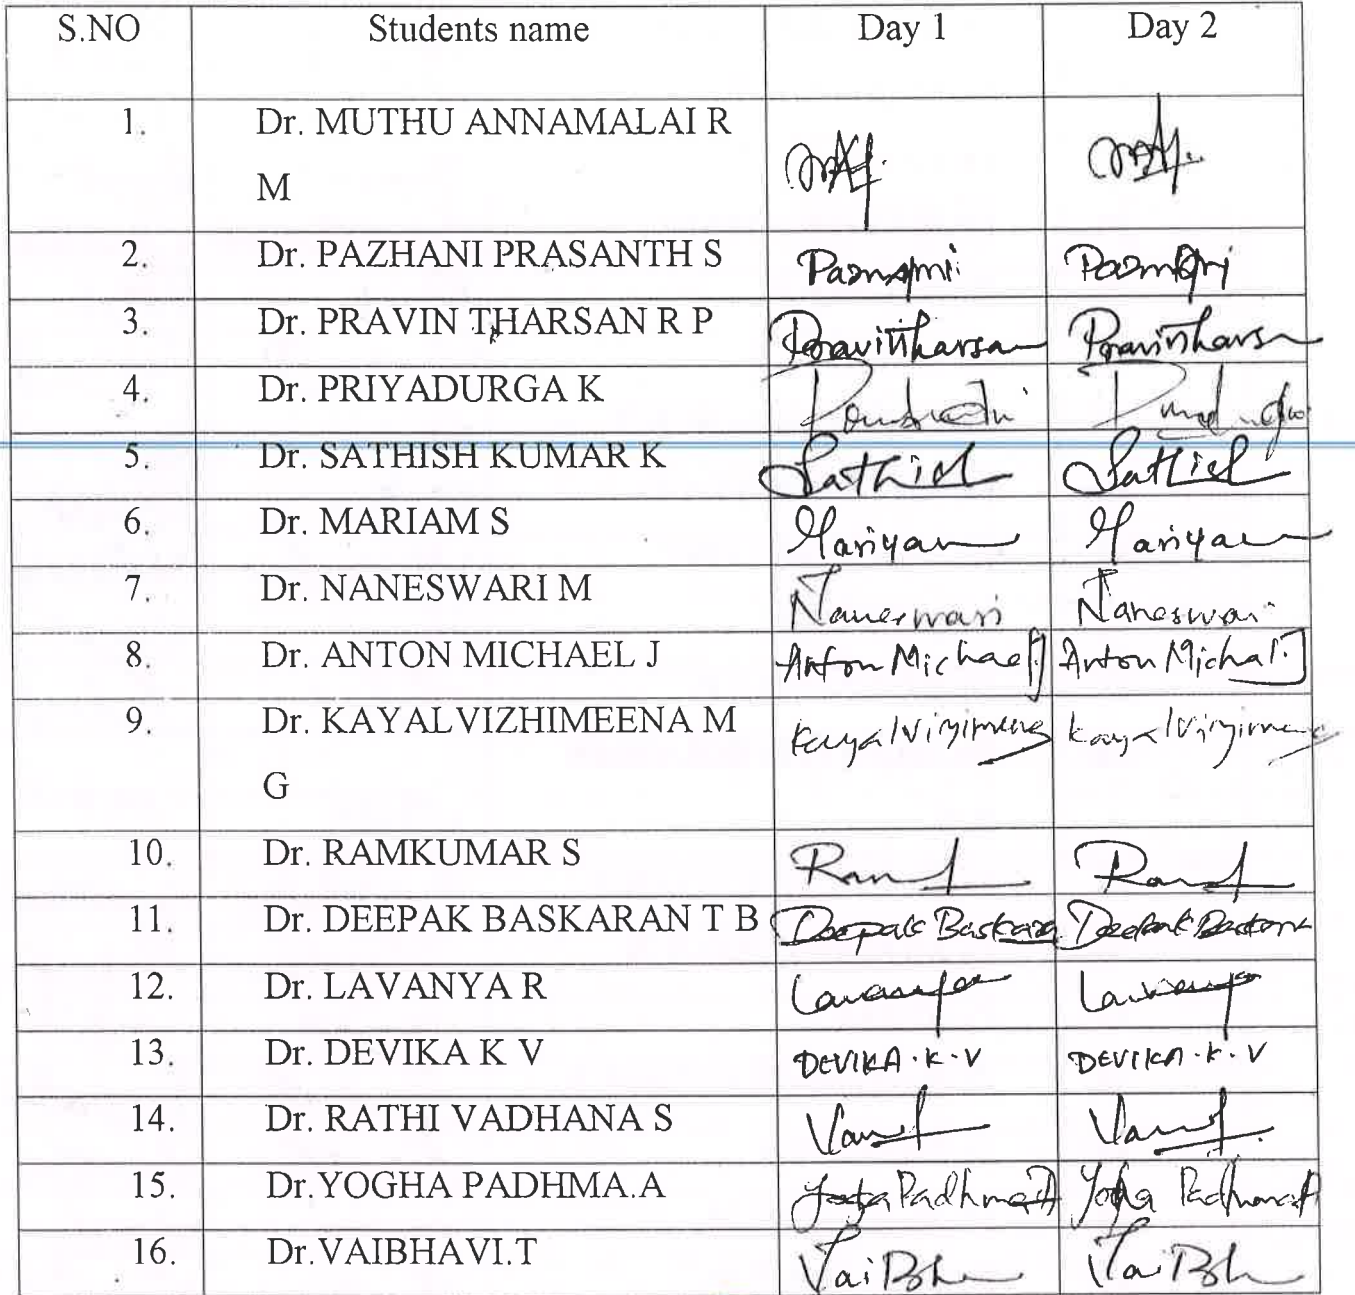 S.NO Students name Day 1 Day 2
1. Dr. MUTHU ANNAMALAI R
M
2. Dr. PAZHANI PRASANTH S
3. Dr. PRAVIN THARSAN R P Pravintharsan Pravintharsan
4. Dr. PRIYADURGA K
5. Dr. SATHISH KUMAR K Sathish Sathish
6. Dr. MARIAM S Mariyam Mariyam
7. Dr. NANESWARI M Naneswari Naneswari
8. Dr. ANTON MICHAEL J Anton Michael J Anton Michal J
9. Dr. KAYALVIZHIMEENA M
G
10. Dr. RAMKUMAR S
11. Dr. DEEPAK BASKARAN T B Deepak Baskaran Deepak
12. Dr. LAVANYA R Lavanya Lavanya
13. Dr. DEVIKA K V DEVIKA.K.V DEVIKA.K.V
14. Dr. RATHI VADHANA S
15. Dr.YOGHA PADHMA.A Yogha Padhma A Yogha Padhma A
16. Dr.VAIBHAVI.T